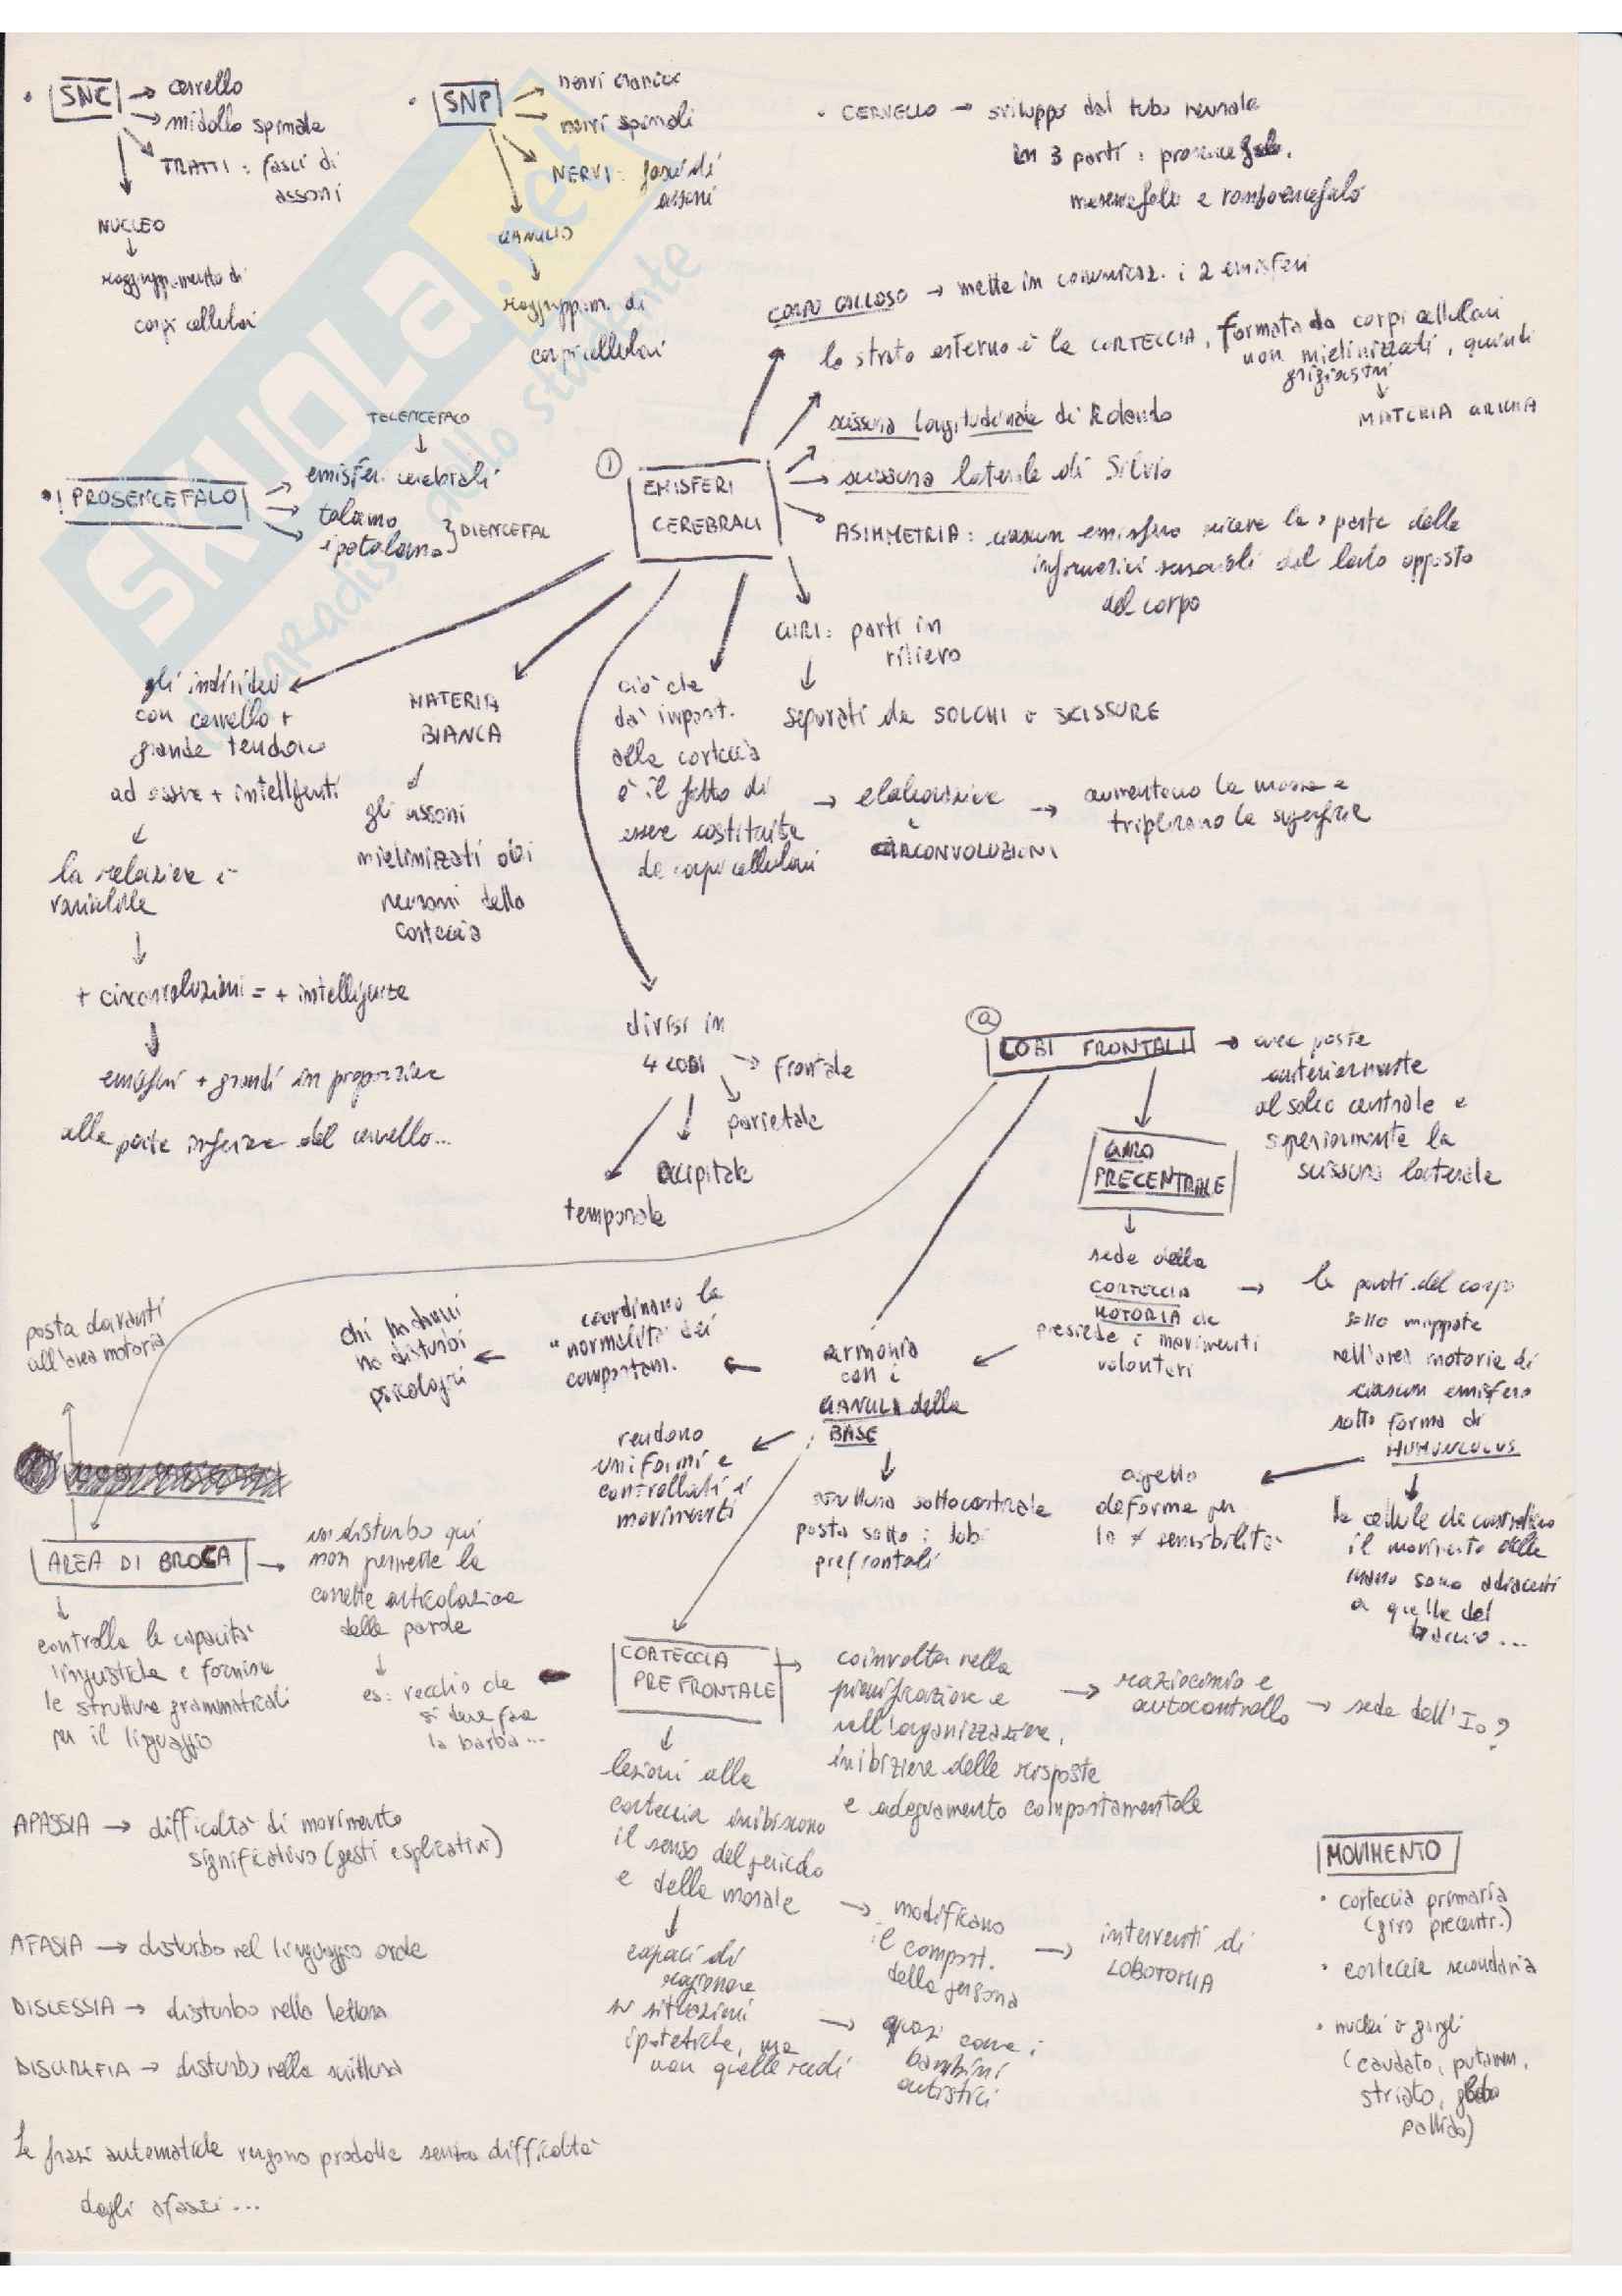 • SNC → cervello
→ midollo spinale
TRATTI: fasci di
assoni
NUCLEO
↓
raggruppamento di
corpi cellulari
• SNP → nervi cranici
→ nervi spinali
NERVI: fasci di
assoni
GANGLIO
raggruppam. di
corpi cellulari
• CERVELLO → sviluppo dal tubo neurale
in 3 parti: prosencefalo,
mesencefalo e romboencefalo
SKUOLA.net
paradiso dello studente
TELENCEFALO
↓
• PROSENCEFALO → emisferi cerebrali
→ talamo
→ ipotalamo } DIENCEFAL
① EMISFERI
CEREBRALI
CORPO CALLOSO → mette in comunicaz. i 2 emisferi
lo strato esterno è la CORTECCIA, formata da corpi cellulari
non mielinizzati, quindi
grigiastri
↓
MATERIA GRIGIA
scissura longitudinale di Rolando
scissura laterale di Silvio
ASIMMETRIA: ciascun emisfero riceve la > parte delle
informazioni sensoriali dal lato opposto
del corpo
GIRI: parti in
rilievo
↓
separati da SOLCHI o SCISSURE
ciò che
da' import.
alla corteccia
è il fatto di
essere costituita
da corpi cellulari
→ elaborazione
e
CIRCONVOLUZIONI
→ aumentano la massa e
triplicano la superficie
gli individui
con cervello +
grande tendono
ad essere + intelligenti
↓
la relazione è
variabile
↓
+ circonvoluzioni = + intelligenza
↓
emisferi + grandi in proporzione
alla parte inferiore del cervello...
MATERIA
BIANCA
↓
gli assoni
mielinizzati dei
neuroni della
corteccia
divisi in
4 LOBI → frontale
parietale
occipitale
temporale
② LOBI FRONTALI → aree poste
anteriormente
al solco centrale e
superiormente la
scissura laterale
GIRO
PRECENTRALE
↓
sede della
CORTECCIA
MOTORIA che
presiede i movimenti
volontari
→ le parti del corpo
sono mappate
nell'area motoria di
ciascun emisfero
sotto forma di
HUMUNCULUS
aspetto
deforme per
la ≠ sensibilità
le cellule che controllano
il movimento della
mano sono adiacenti
a quelle del
braccio...
armonia
con i
GANGLI della
BASE
coordinano la
"normalità" dei
comportam.
chi ha danni
ha disturbi
psicologici
rendono
uniformi e
controllati i
movimenti
struttura sottocorticale
posta sotto i lobi
prefrontali
posta davanti
all'area motoria
AREA DI BROCA → un disturbo qui
non permette la
corretta articolazione
delle parole
↓
es: vecchio che
si deve fare
la barba...
controlla le capacità
linguistiche e fornisce
le strutture grammaticali
per il linguaggio
CORTECCIA
PREFRONTALE
→ coinvolta nella
pianificazione e
nell'organizzazione,
inibizione delle risposte
e adeguamento comportamentale
→ raziocinio e
autocontrollo → sede dell'Io?
lesioni alla
corteccia inibiscono
il senso del pericolo
e della morale
→ modificano
il comport.
della persona
→ interventi di
LOBOTOMIA
↓
capaci di
ragionare
su situazioni
ipotetiche, ma
non quelle reali
→ quasi come i
bambini
autistici
APASSIA → difficoltà di movimento
significativo (gesti esplicativi)
AFASIA → disturbo nel linguaggio orale
DISLESSIA → disturbo nella lettura
DISGRAFIA → disturbo nella scrittura
Le frasi automatiche vengono prodotte senza difficoltà
dagli afasici...
MOVIMENTO
• corteccia primaria
(giro precentr.)
• corteccia secondaria
• nuclei o gangli
(caudato, putamen,
striato, globo
pallido)